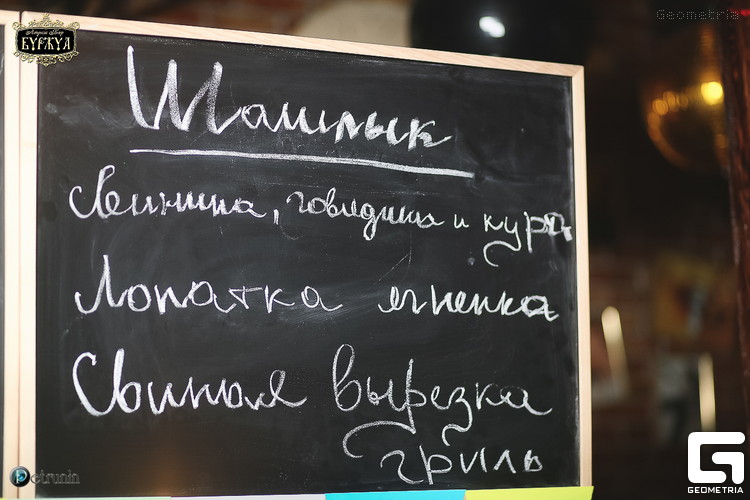 БУРЖУА
Geometria
Шашлык
Свинина, говядина и кура
Лопатка ягненка
Свиная вырезка
гриль
Petrunin
GEOMETRIA